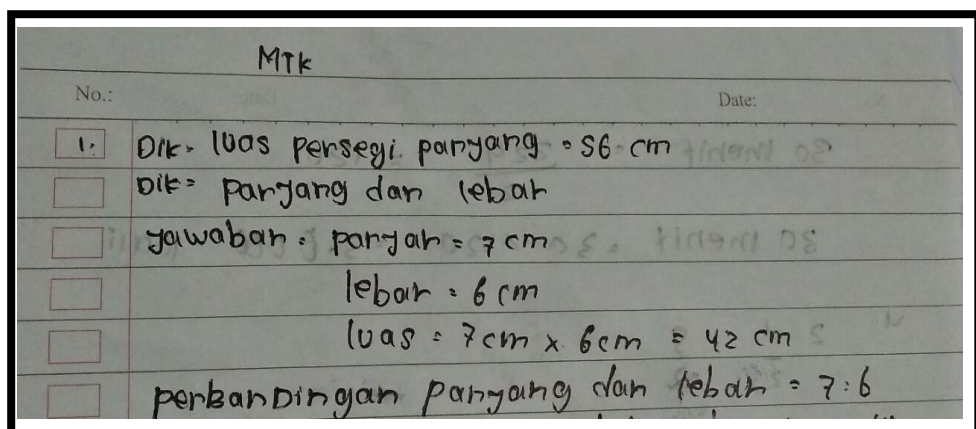 MTK
No.: Date:
1. Dik = luas persegi panyang = 56 cm
Dik = panyang dan lebar
Jawaban = panyan = 7 cm
lebar = 6 cm
luas = 7 cm x 6 cm = 42 cm
perbandingan panyang dan lebar = 7:6